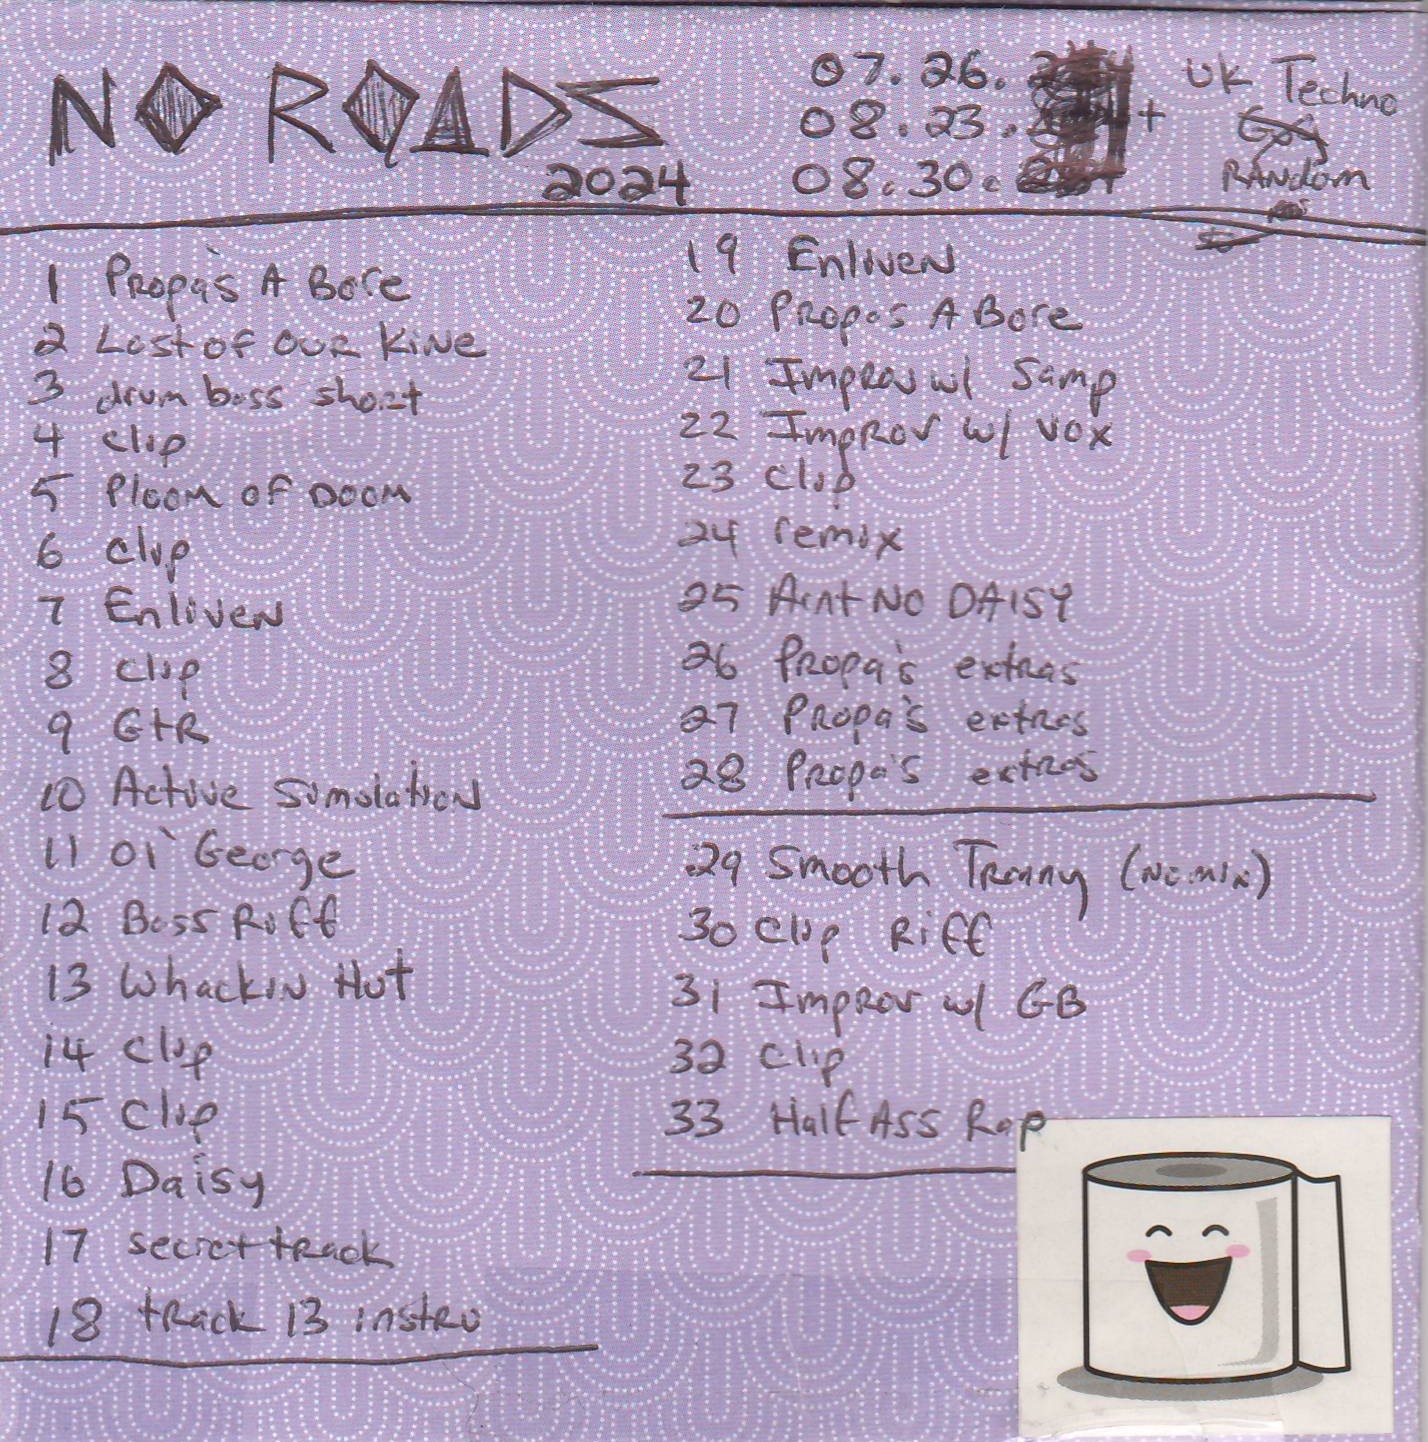 NO ROADS
2024
07.26.
08.23. +
08.30.
UK Techno
RANdom
1 Propa's A Bore
2 Last of OUR KiNe
3 drum bass short
4 clip
5 Ploom of Doom
6 clip
7 EnliveN
8 clip
9 GtR
10 Active SimulatioN
11 Ol' George
12 Bass Riff
13 WhackiN Hut
14 Clip
15 Clip
16 Daisy
17 secret track
18 track 13 instru
19 EnliveN
20 Propa's A Bore
21 Improv w/ Samp
22 Improv w/ vox
23 Clip
24 remix
25 Aint NO DAISY
26 Propa's extras
27 Propa's extras
28 Propa's extras
29 Smooth Tranny
30 Clip Riff
31 Improv w/ GB
32 Clip
33 Half Ass Rap